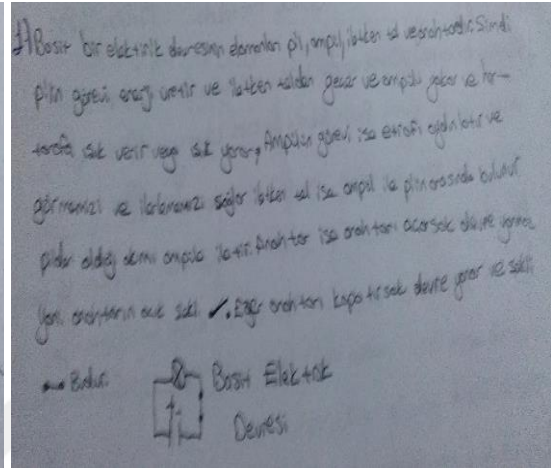 1) Basit bir elektirik devresinin elemanları pil, ampul, iletken tel ve anahtardır. Şimdi
pilin görevi enerji üretir ve iletken telden geçer ve ampulü yakar ve her
tarafa ışık verir veya ışık yayar, Ampulün görevi ise etrafı aydınlatır ve
görmemizi ve ilerlememizi sağlar iletken tel ise ampul ile pilin arasında bulunur
pilden aldığı akımı ampule iletir. Anahtar ise anahtarı açarsak devre yanmaz
Yani anahtarın açık şekli . Eğer anahtarı kapatırsak devre yanar ve şekli
Budur.
Basit Elektrik
Devresi